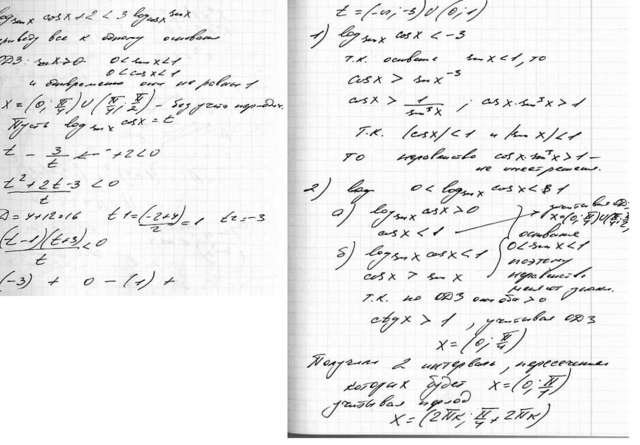 log sinx cosx + 2 < 3 log cosx sinx
привожу все к одному основан
ОДЗ: sinx>0 0<sinx<1
0<cosx<1
и одновременно они не равны 1
x = (0; π/4) ∪ (π/4; π/2) – без учета период.
Пусть log sinx cosx = t
t - 3/t + 2 < 0
t² + 2t - 3 / t < 0
D = 4+12=16 t1 = (-2+4)/2 = 1 t2 = -3
(t-1)(t+3) / t < 0
(-3) + 0 - (1) +
t = (-∞; -3) ∪ (0; 1)
1) log sinx cosx < -3
т.к. основание sinx<1, то
cosx > sinx⁻³
cosx > 1/sin³x ; cosx·sin³x > 1
т.к. |cosx|<1 и |sinx|<1
то неравенство cosx·sin³x > 1 –
не имеет решения.
2) 0 < log sinx cosx < 1
а) log sinx cosx > 0
cosx < 1
учитывая ОДЗ
x = (0; π/4) ∪ (π/4; π/2)
основание
0<sinx<1
поэтому
неравенство
меняет знаки.
б) log sinx cosx < 1
cosx > sinx
т.к. по ОДЗ они оба > 0
ctgx > 1, учитывая ОДЗ
x = (0; π/4)
Получили 2 интервала, пересечением
которых будет x = (0; π/4)
учитывая период
x = (2πк; π/4 + 2πк)